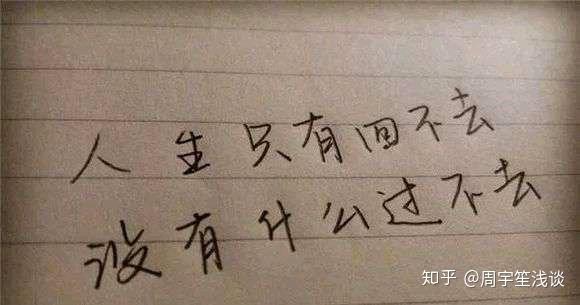 人生只有回不去
没有什么过不去
知乎 @周宇笙浅谈